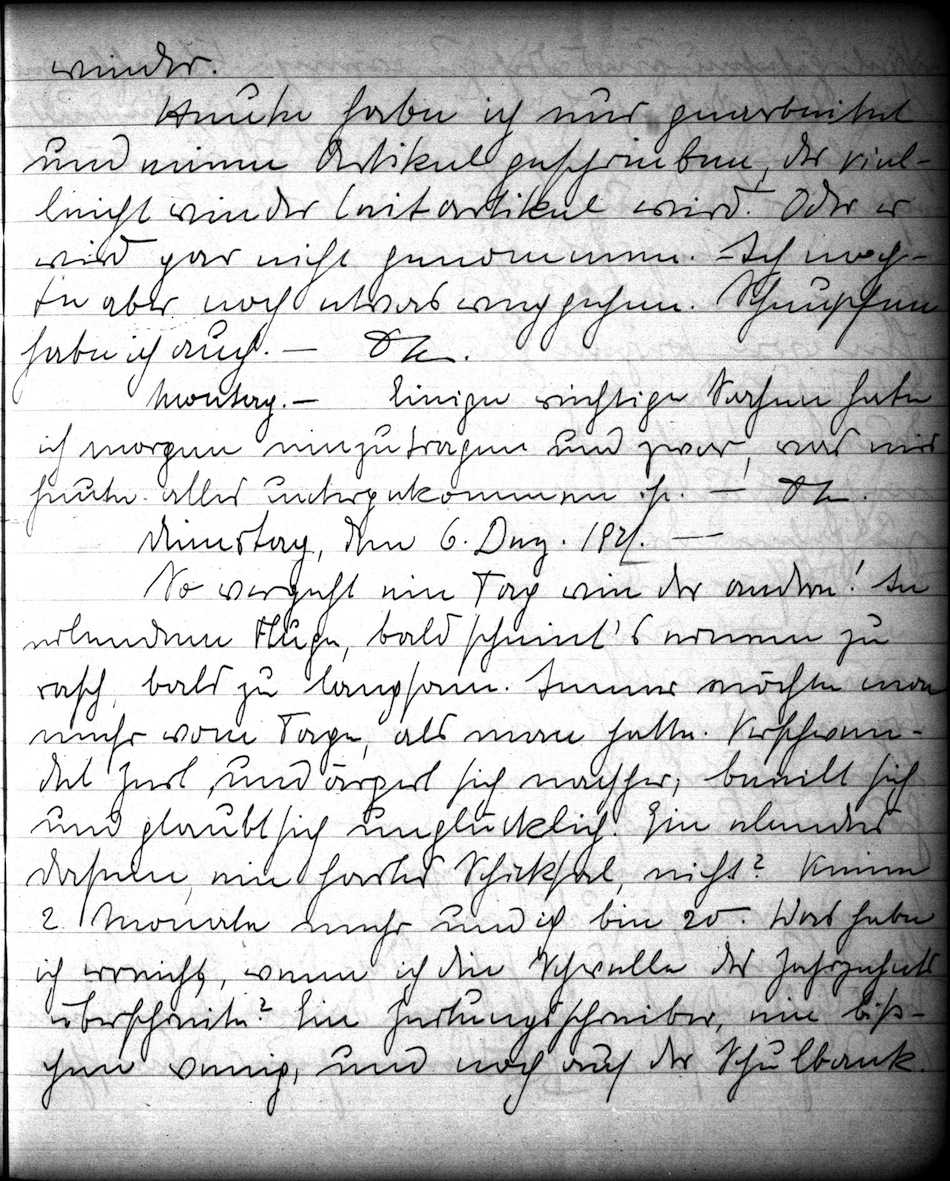 wieder.
Heute habe ich nur gearbeitet
und einen Artikel geschrieben, der viel-
leicht wieder Leitartikel wird. Oder er
wird gar nicht genommen. – Ich möch-
te aber noch etwas weggehen. Schnupfen
habe ich auch. –
Montag. – Einige wichtige Sachen habe
ich morgen einzutragen und zwar, was mir
heute alles untergekommen ist. –
Dienstag, den 6. Dez. 1921. —
So vergeht ein Tag wie der andere! Im
eilenden Fluge, bald scheint's einem zu
rasch, bald zu langsam. Immer möchte man
mehr vom Tage, als man hatte. Verschwen-
det Zeit, und ärgert sich nachher, beeilt sich
und glaubt sich unglücklich. Ein elendes
Dasein, ein hartes Schicksal, nicht? Keine
2 Monate mehr und ich bin 20. Was habe
ich erreicht, wenn ich die Schwelle des Jahrzehnts
überschreite? Ein Zeitungsschreiber, ein biß-
chen wenig, und noch auf der Schulbank.